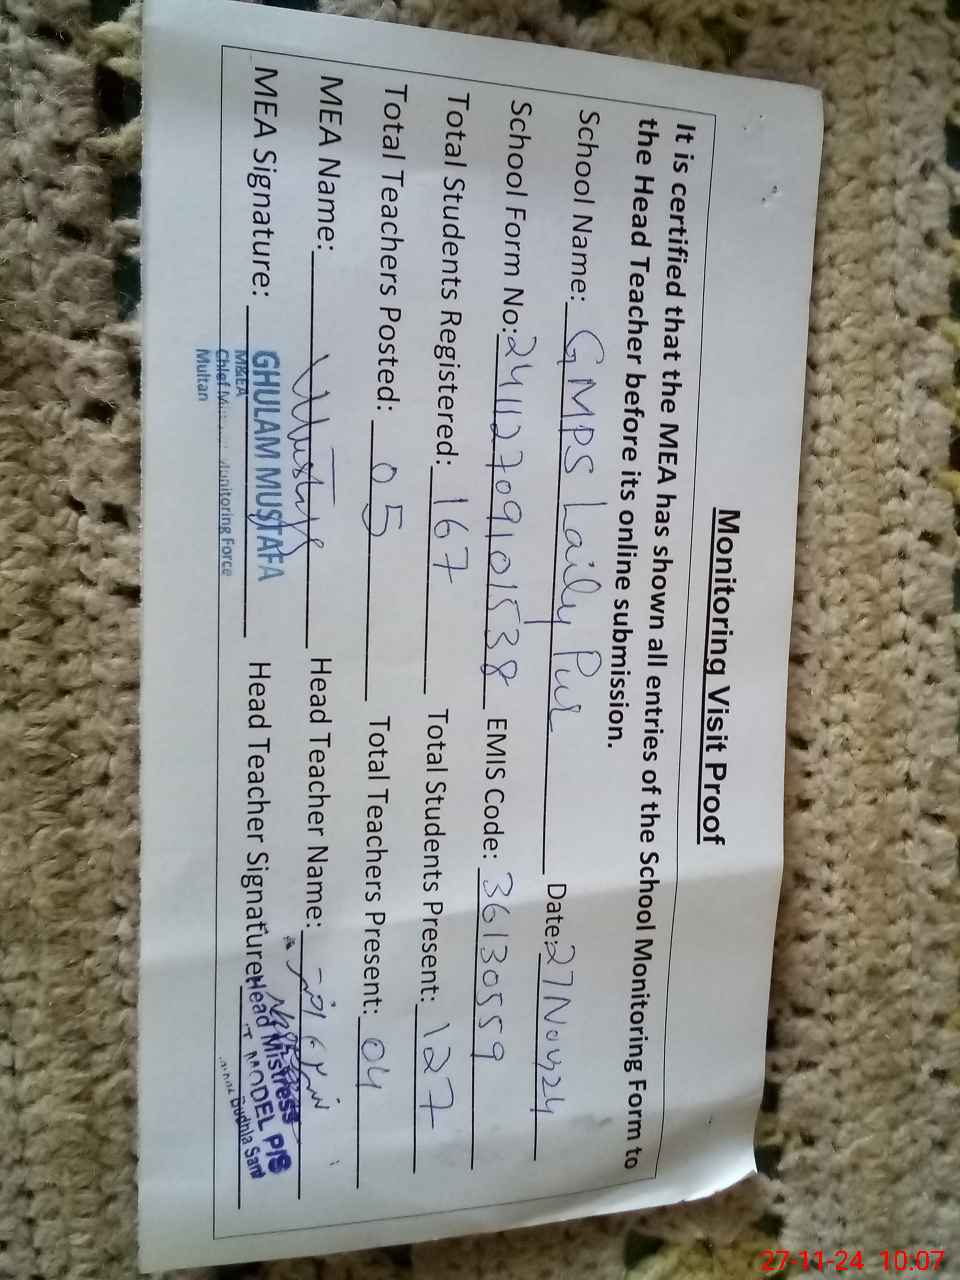 Monitoring Visit Proof
It is certified that the MEA has shown all entries of the School Monitoring Form to
the Head Teacher before its online submission.
School Name: GMPS Laily Pur Date: 27 Nov 24
School Form No: 24112709101538 EMIS Code: 36130559
Total Students Registered: 167 Total Students Present: 127
Total Teachers Posted: 05 Total Teachers Present: 04
MEA Name: Mustafa Head Teacher Name:
MEA Signature: Head Teacher Signature:
GHULAM MUSTAFA
M&EA
Chief Monitoring Force
Multan
Head Mistress
MODEL P/S
Budhla Sant
27-11-24 10:07